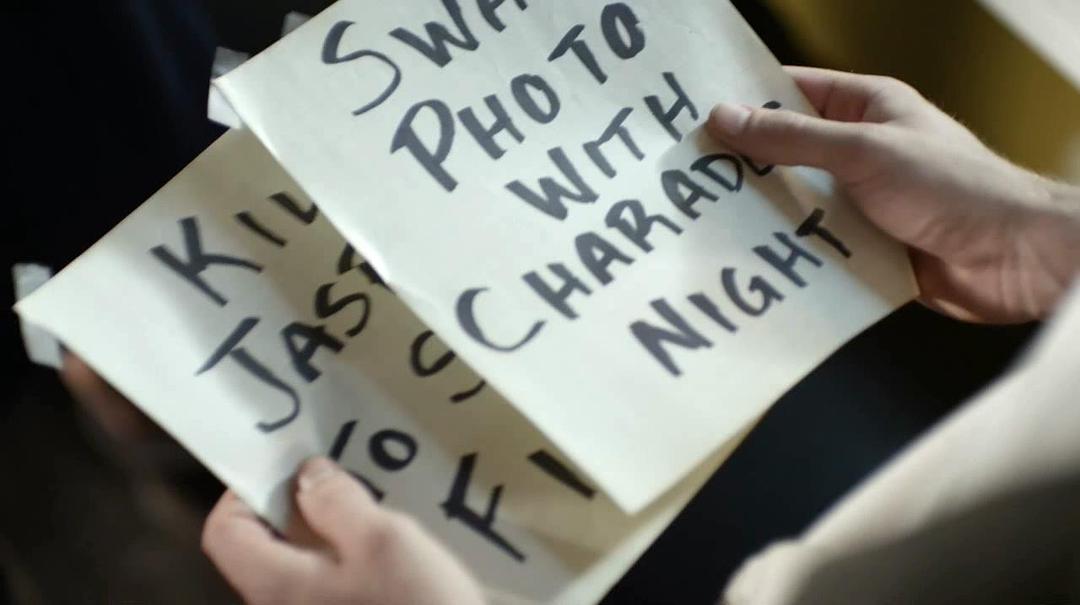 SWA
PHOTO
WITH
CHARADE
NIGHT
KIL
JAS
S
TO
F